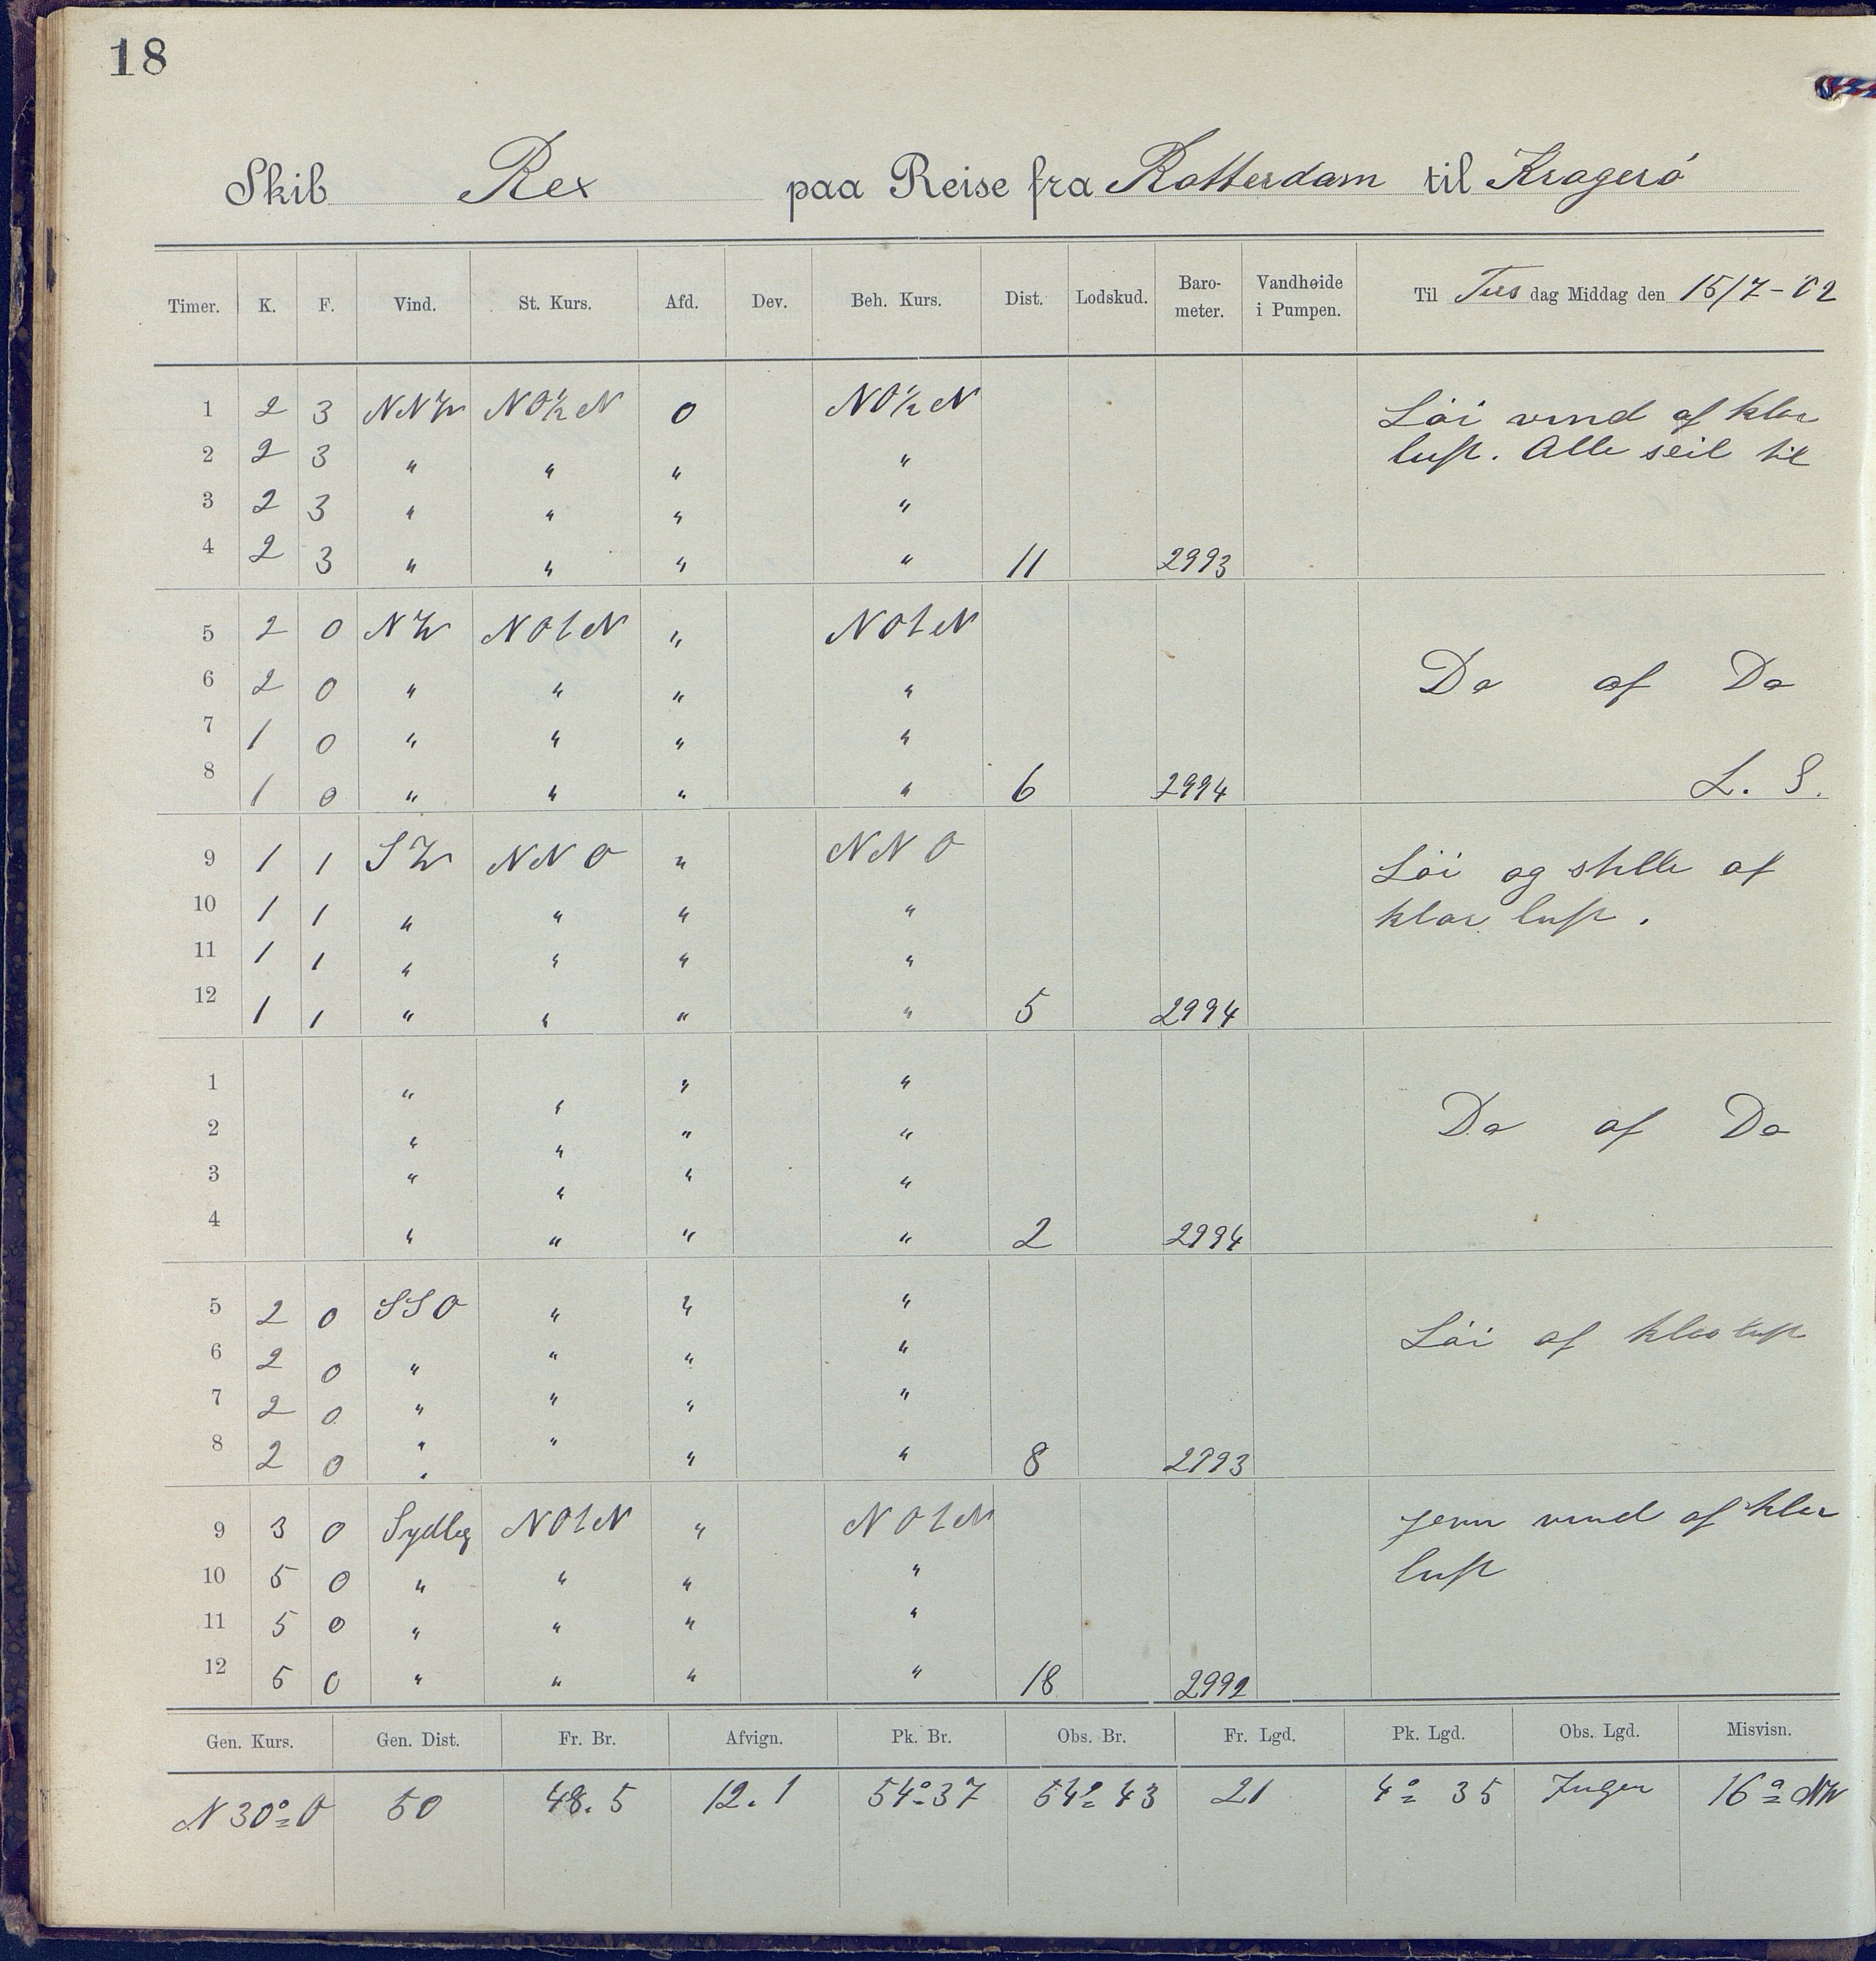 18
Skib Rex paa Reise fra Rotterdam til Kragerö
Timer. K. F. Vind. St. Kurs. Afd. Dev. Beh. Kurs. Dist. Lodskud. Baro-meter. Vandhøide i Pumpen. Til Tirs dag Middag den 15/7-'02
1 2 3 NNW NO½N 0 NO½N Löi vind af klar
2 2 3 " " " " luft. Alle seil til
3 2 3 " " " "
4 2 3 " " " " 11 2993
5 2 0 NW NOtN " NOtN
6 2 0 " " " " Do af Do
7 1 0 " " " "
8 1 0 " " " " 6 2994 L. S.
9 1 1 SW NNO " NNO Löi og stille af
10 1 1 " " " " klar luft.
11 1 1 " " " "
12 1 1 " " " " 5 2994
1 " " " "
2 " " " " Do af Do
3 " " " "
4 " " " " 2 2994
5 2 0 SSO " " " Löi af klar luft
6 2 0 " " " "
7 2 0 " " " "
8 2 0 " " " " 8 2993
9 3 0 Sydlig NOtN " NOtN jevn vind af klar
10 5 0 " " " " luft
11 5 0 " " " "
12 5 0 " " " " 18 2992
Gen. Kurs. Gen. Dist. Fr. Br. Afvign. Pk. Br. Obs. Br. Fr. Lgd. Pk. Lgd. Obs. Lgd. Misvisn.
N 30° O 50 48.5 12.1 54°37 54° 43 21 4° 35 Ingen 16° NW